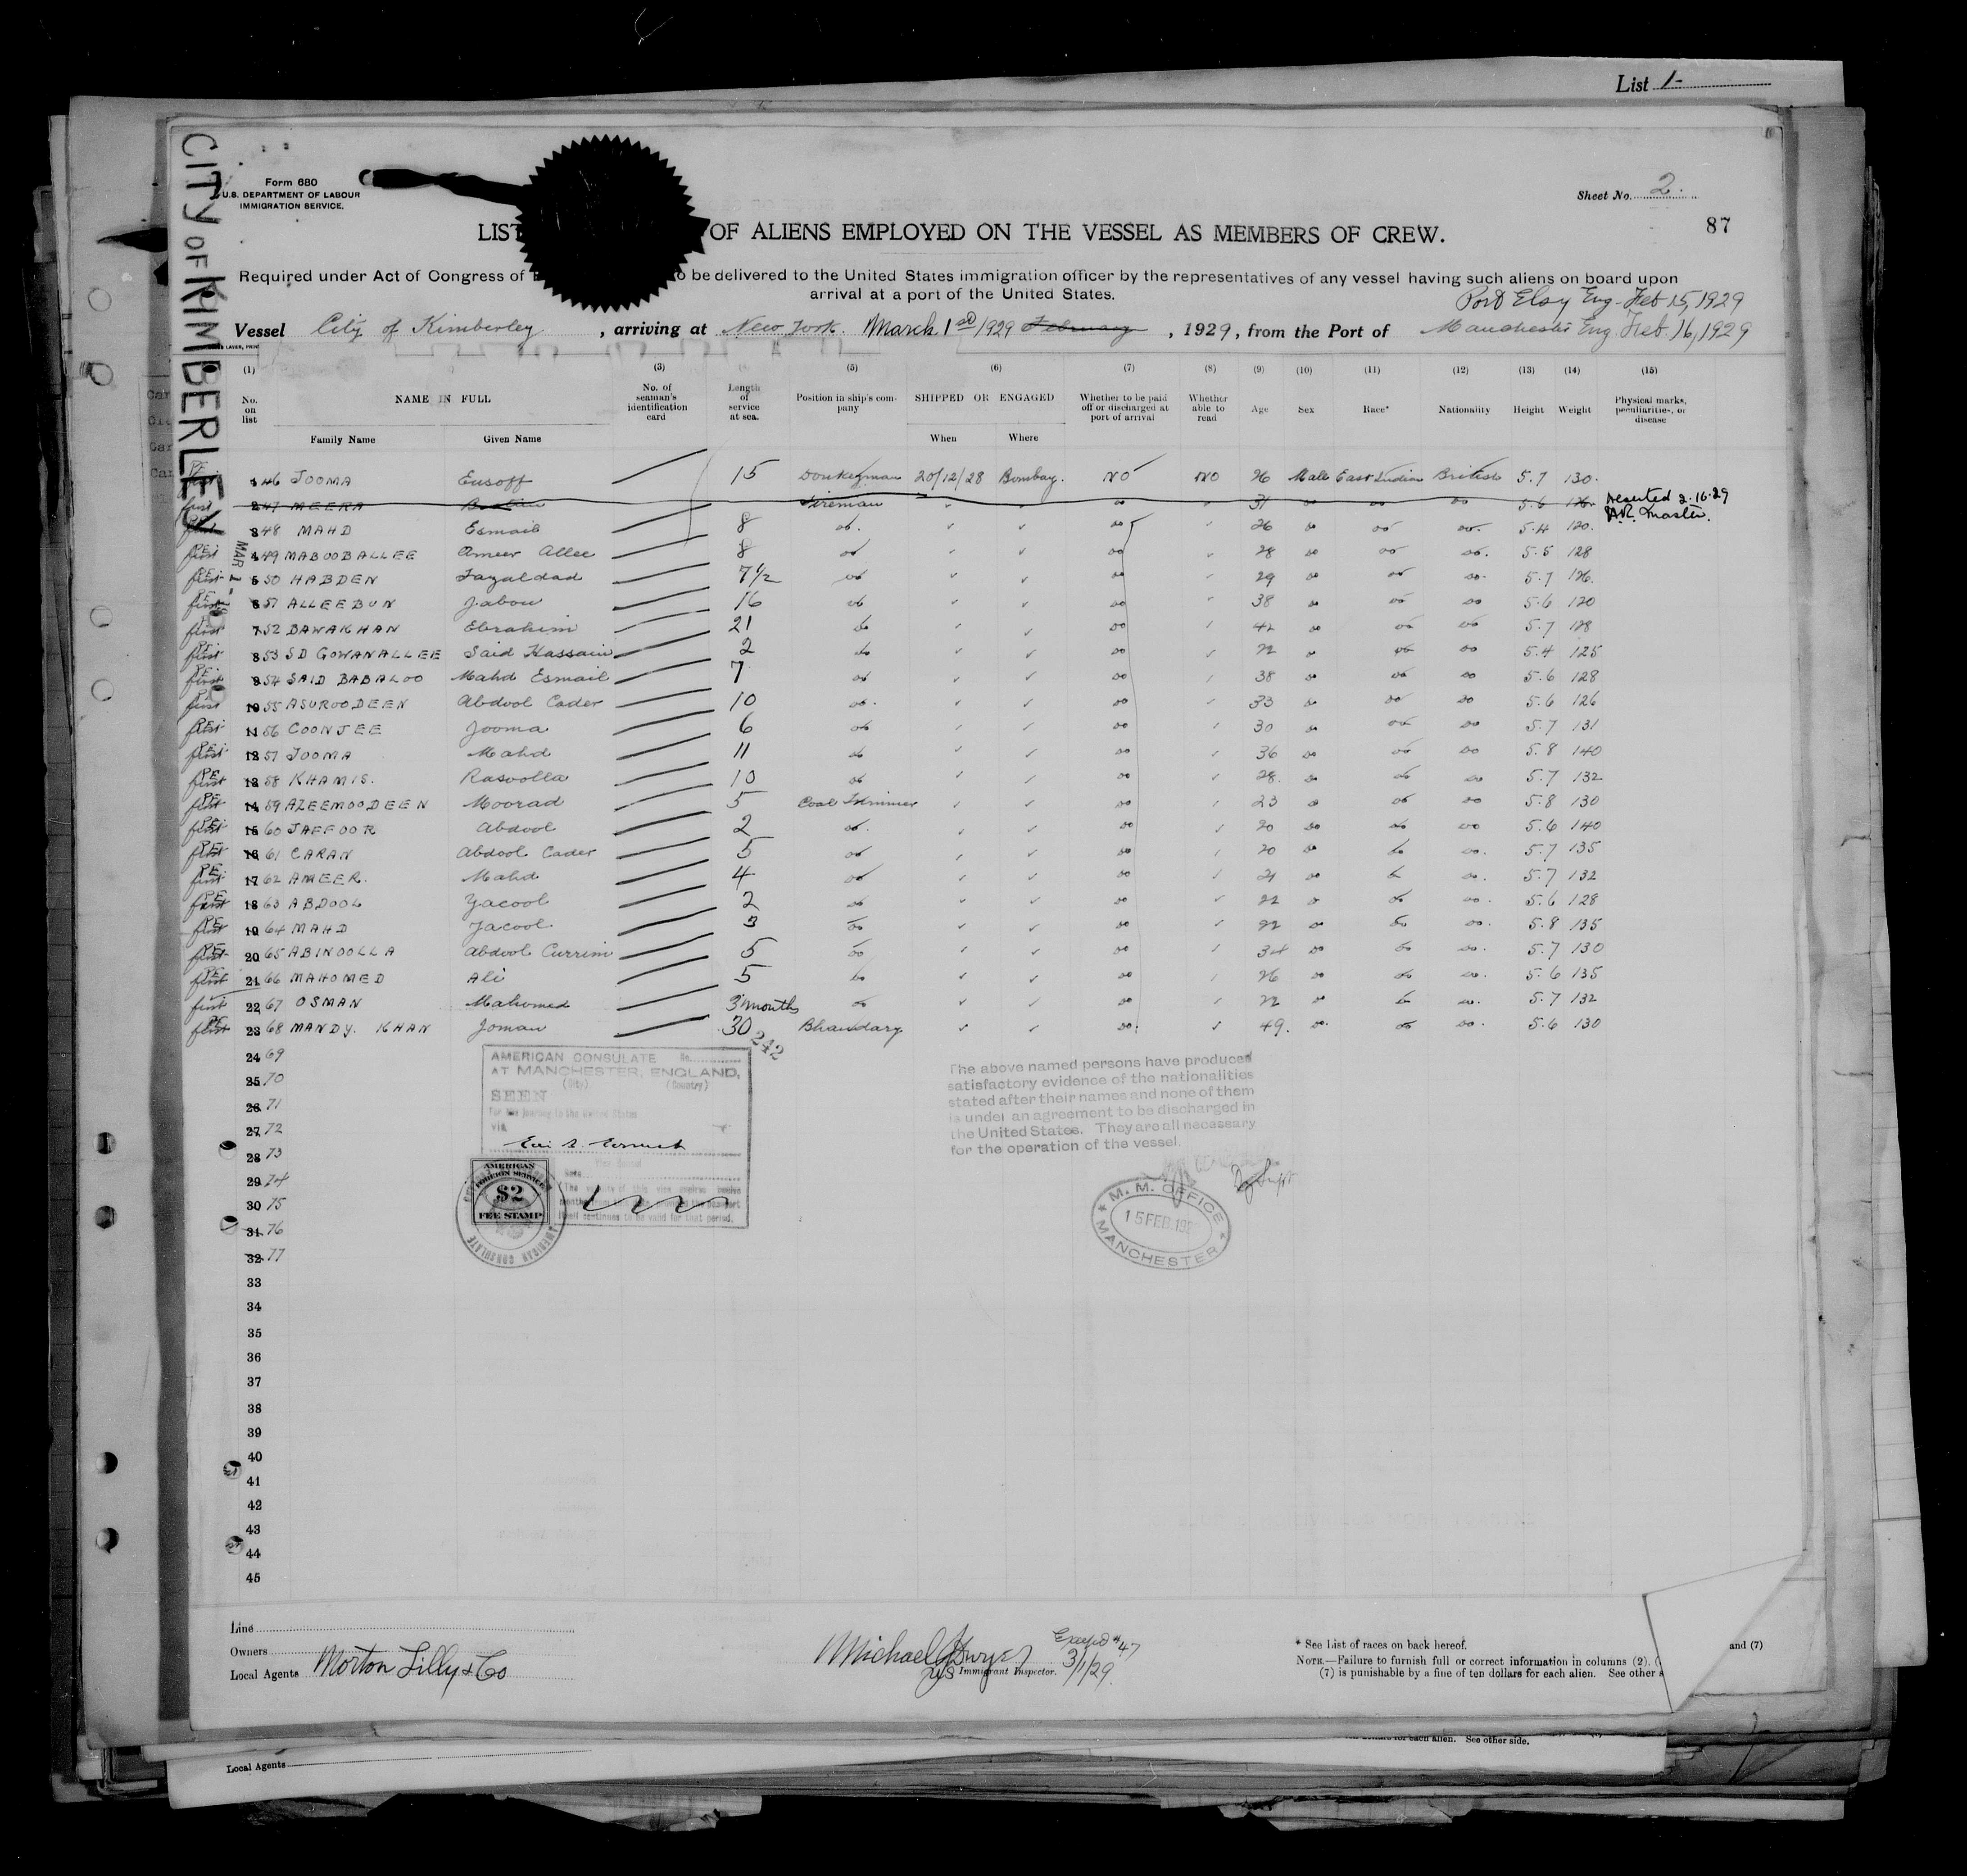 List 1-
CITY OF KIMBERLEY
MAR 1
Form 680
U.S. DEPARTMENT OF LABOUR
IMMIGRATION SERVICE.
Sheet No. 2.
87
LIST OF ALIENS EMPLOYED ON THE VESSEL AS MEMBERS OF CREW.
Required under Act of Congress of to be delivered to the United States immigration officer by the representatives of any vessel having such aliens on board upon
arrival at a port of the United States.
Feb 15, 1929
Vessel City of Kimberley, arriving at New York. March 1st 1929 February, 1929, from the Port of Manchester Eng. Feb. 16, 1929
(1) (3) (5) (6) (7) (8) (9) (10) (11) (12) (13) (14) (15)
No. on list NAME IN FULL No. of seaman's identification card Length of service at sea. Position in ship's company SHIPPED OR ENGAGED Whether to be paid off or discharged at port of arrival Whether able to read Age Sex Race* Nationality Height Weight Physical marks, peculiarities, or disease
Family Name Given Name When Where
1 46 JOOMA Eusoff 15 Donkeyman 20/12/28 Bombay. NO NO 26 Male East Indian British 5.7 130.
2 47 MEERA Fireman " " do 31 do do do 5.6 126. Deserted 2.16.29
Master.
3 48 MAHD Esmail 8 do. do 26 do do do. 5.4 120.
4 49 MABOOBALLEE Ameer Allee 8 do do 28 do do do. 5.5 128
5 50 HABDEN Fazaldad 7½ do do 29 do do do. 5.7 126.
6 51 ALLEEBUN Jabou 16 do do 38 do do do 5.6 120
7 52 BAWAKHAN Ebrahim 21 do do 42 do do do 5.7 128
8 53 SD GOWANALLEE Said Hassain 2 do do 22 do do do 5.4 125
9 54 SAID BABALOO Mahd Esmail 7 do do 38 do do do 5.6 128
10 55 ASUROODEEN Abdool Cader 10 do. do 33 do do do 5.6 126
11 56 COONJEE Jooma 6 do do 30 do do do 5.7 131
12 57 JOOMA Mahd 11 do do 36 do do do 5.8 140
13 58 KHAMIS. Rasoolla 10 do do 28. do do do 5.7 132
14 59 AZEEMOODEEN Moorad 5 Coal Trimmer do 23 do do do 5.8 130
15 60 JAFFOOR Abdool 2 do. do 20 do do do 5.6 140
16 61 CARAN Abdool Cader 5 do do 20 do do do. 5.7 135
17 62 AMEER. Mahd 4 do do 21 do do do. 5.7 132
18 63 ABDOOL Yacool 2 do do 22 do do do. 5.6 128
19 64 MAHD Yacool 3 do do 22 do do do. 5.8 135
20 65 ABINOOLLA Abdool Currim 5 do do 34 do do do. 5.7 130
21 66 MAHOMED Ali 5 do do 26 do do do. 5.6 135
22 67 OSMAN Mahomed 3 months do do 22 do do do. 5.7 132
23 68 MANDY. KHAN Joman 30 Bhandary do. 49. do. do do. 5.6 130
242
24 69
25 70
26 71
27 72
28 73
29 74
30 75
31 76
32 77
33
34
35
36
37
38
39
40
41
42
43
44
45
AMERICAN CONSULATE No.
AT MANCHESTER, ENGLAND,
(City) (Country)
SEEN
For the journey to the United States
via
AMERICAN
FOREIGN SERVICE
$2
FEE STAMP
AMERICAN CONSULATE
The above named persons have produced
satisfactory evidence of the nationalities
stated after their names and none of them
is under an agreement to be discharged in
the United States. They are all necessary
for the operation of the vessel.
M. M. OFFICE
15 FEB. 192
MANCHESTER
Line
Owners
Local Agents Morton Lilly & Co
Immigrant Inspector. 3/1/29.
#47
* See List of races on back hereof.
NOTE.—Failure to furnish full or correct information in columns (2), and (7)
(7) is punishable by a fine of ten dollars for each alien. See other
for each alien. See other side.
Local Agents